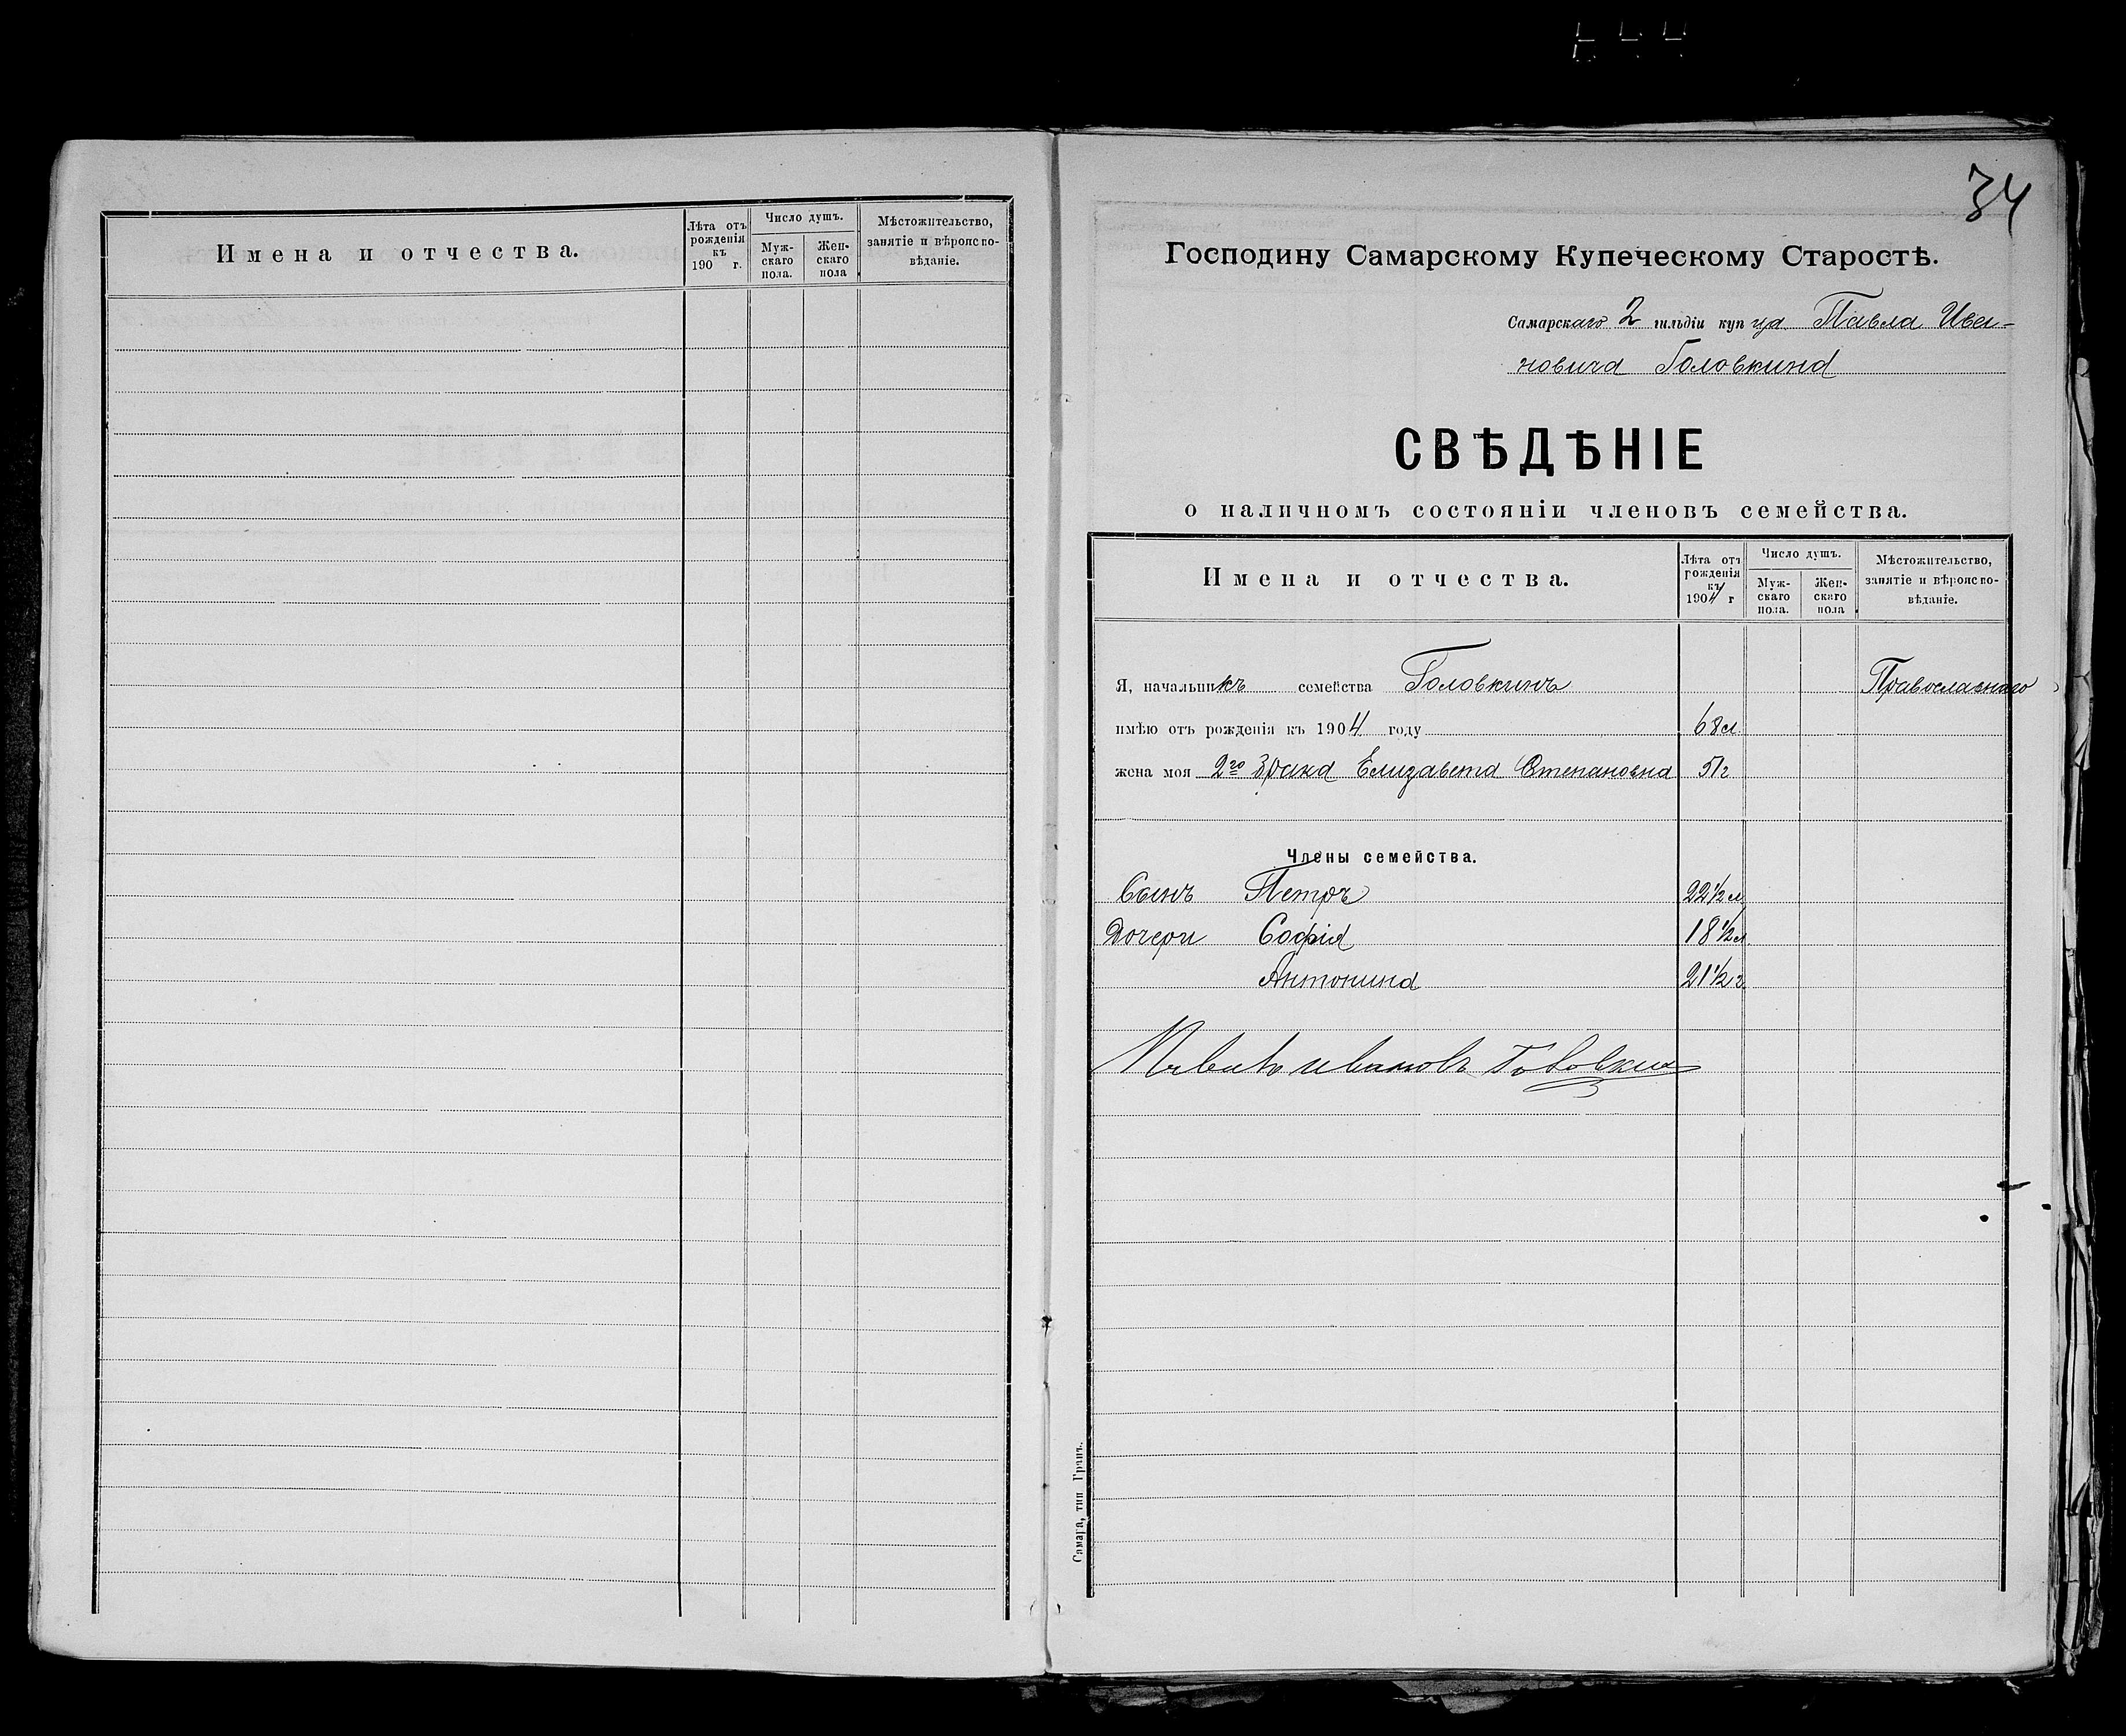 Имена и отчества.
Лѣта отъ рожденія къ 190 г.
Число душъ.
Муж-скаго пола.
Жен-скаго пола
Мѣстожительство, занятіе и вѣроиспо-вѣданіе.
34
Господину Самарскому Купеческому Старостѣ.
Самарскаго 2 гильдіи купца Павла Ива-
новича Головкина
СВѢДѢНІЕ
о наличномъ состояніи членовъ семейства.
Имена и отчества.
Лѣта отъ рожденія къ 1904 г
Число душъ.
Муж-скаго пола.
Жен-скаго пола
Мѣстожительство, занятіе и вѣроиспо-вѣданіе.
Я, начальникъ семейства Головкинъ Православнаго
имѣю отъ рожденія къ 1904 году 68 л.
жена моя 2го брака Елизавета Степановна 51 г
Члены семейства.
Сынъ Петръ 22 1/2 л
Дочери Софія 18 1/2 л
Антонина 21 1/2 г.
Павелъ Ивановъ Головкинъ
Самара, тип. Гранъ.